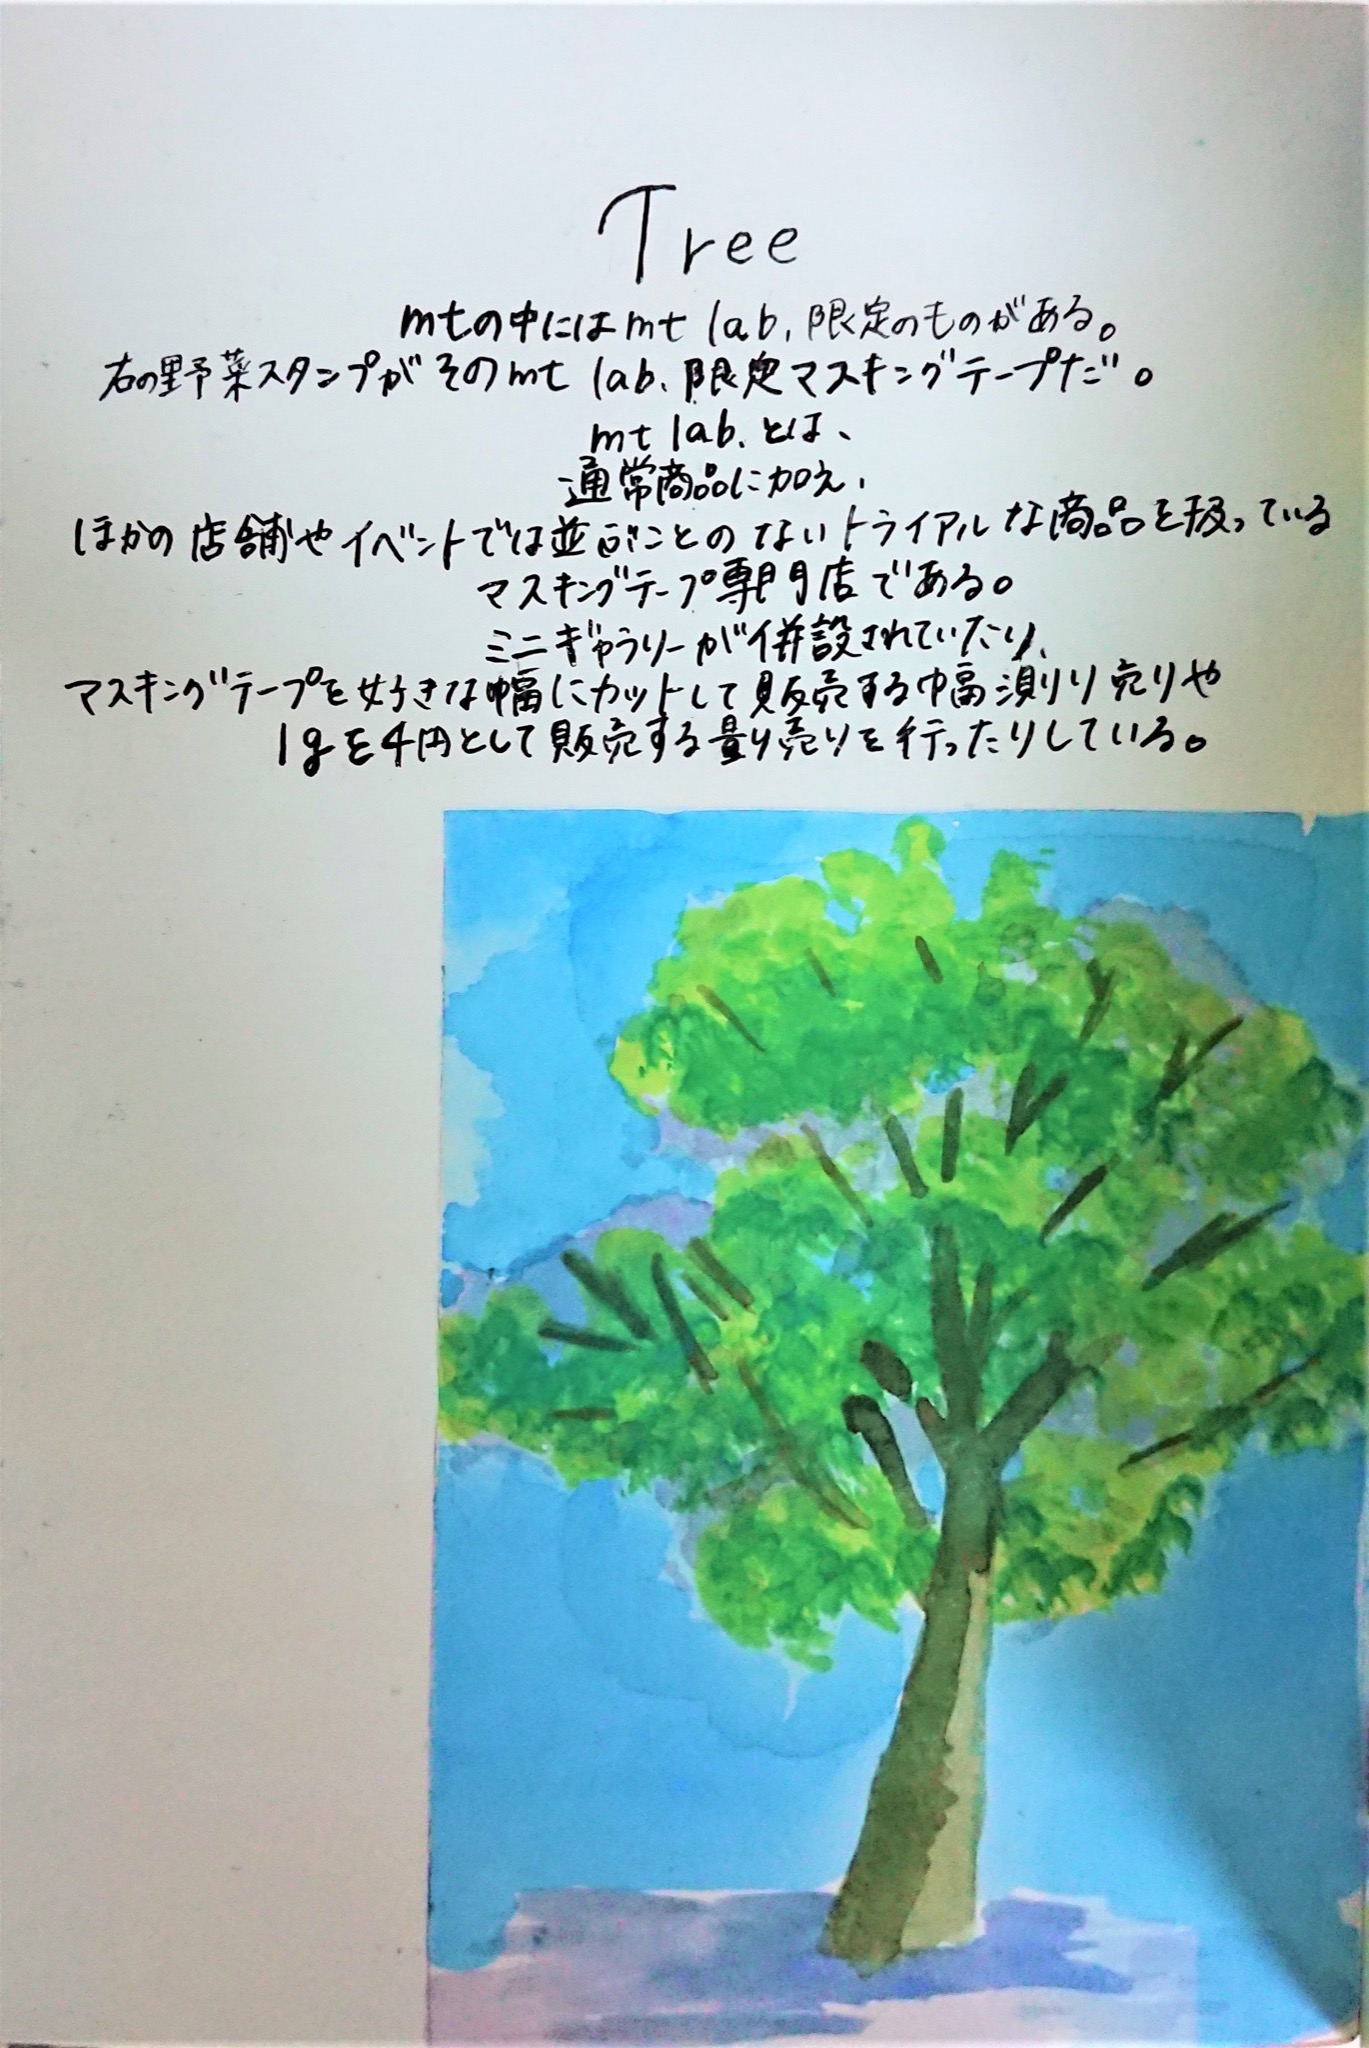 Tree
mtの中にはmt lab.限定のものがある。
右の野菜スタンプがそのmt lab.限定マスキングテープだ。
mt lab.とは、
通常商品に加え、
ほかの店舗やイベントでは並ぶことのないトライアルな商品を扱っている
マスキングテープ専門店である。
ミニギャラリーが併設されていたり、
マスキングテープを好きな幅にカットして販売する幅測り売りや
1gを4円として販売する量り売りを行ったりしている。